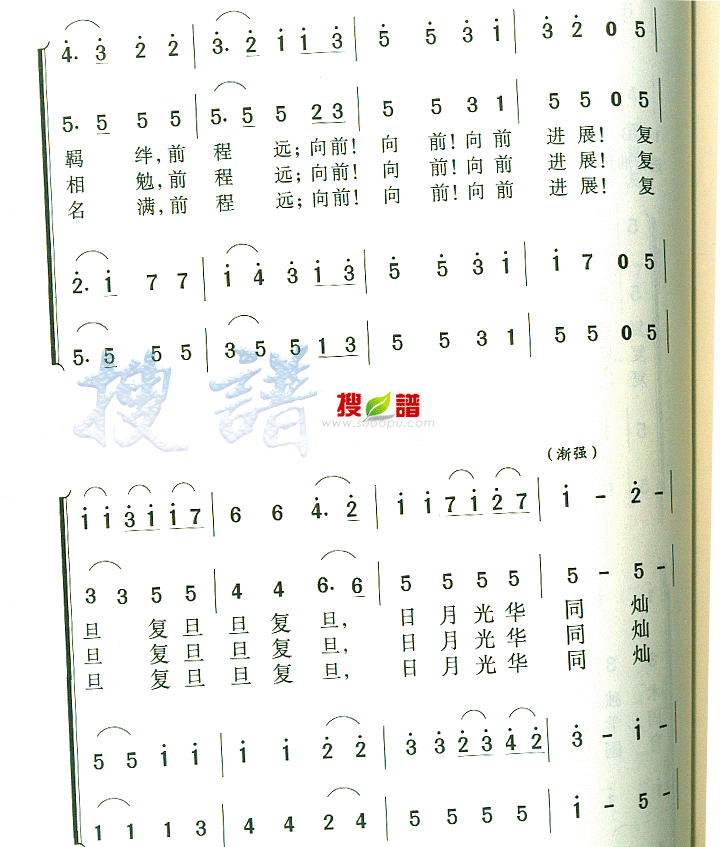 4. 3 2 2 | 3. 2 1 1 3 | 5 5 3 1 | 3 2 0 5 |
5. 5 5 5 | 5. 5 5 2 3 | 5 5 3 1 | 5 5 0 5 |
羁 绊, 前 程 远; 向前! 向 前! 向 前 进 展! 复
相 勉, 前 程 远; 向前! 向 前! 向 前 进 展! 复
名 满, 前 程 远; 向前! 向 前! 向 前 进 展! 复
2. 1 7 7 | 1 4 3 1 3 | 5 5 3 1 | 1 7 0 5 |
5. 5 5 5 | 3 5 5 1 3 | 5 5 3 1 | 5 5 0 5 |
搜譜
搜譜
www.sooopu.com
(渐强)
1 1 3 1 1 7 | 6 6 4. 2 | 1 1 7 1 2 7 | 1 - 2 - |
3 3 5 5 | 4 4 6. 6 | 5 5 5 5 | 5 - 5 - |
旦 复 旦 旦 复 旦, 日 月 光 华 同 灿
旦 复 旦 旦 复 旦, 日 月 光 华 同 灿
旦 复 旦 旦 复 旦, 日 月 光 华 同 灿
5 5 1 1 | 1 1 2 2 | 3 3 2 3 4 2 | 3 - 1 - |
1 1 1 3 | 4 4 2 4 | 5 5 5 5 | 1 - 5 - |